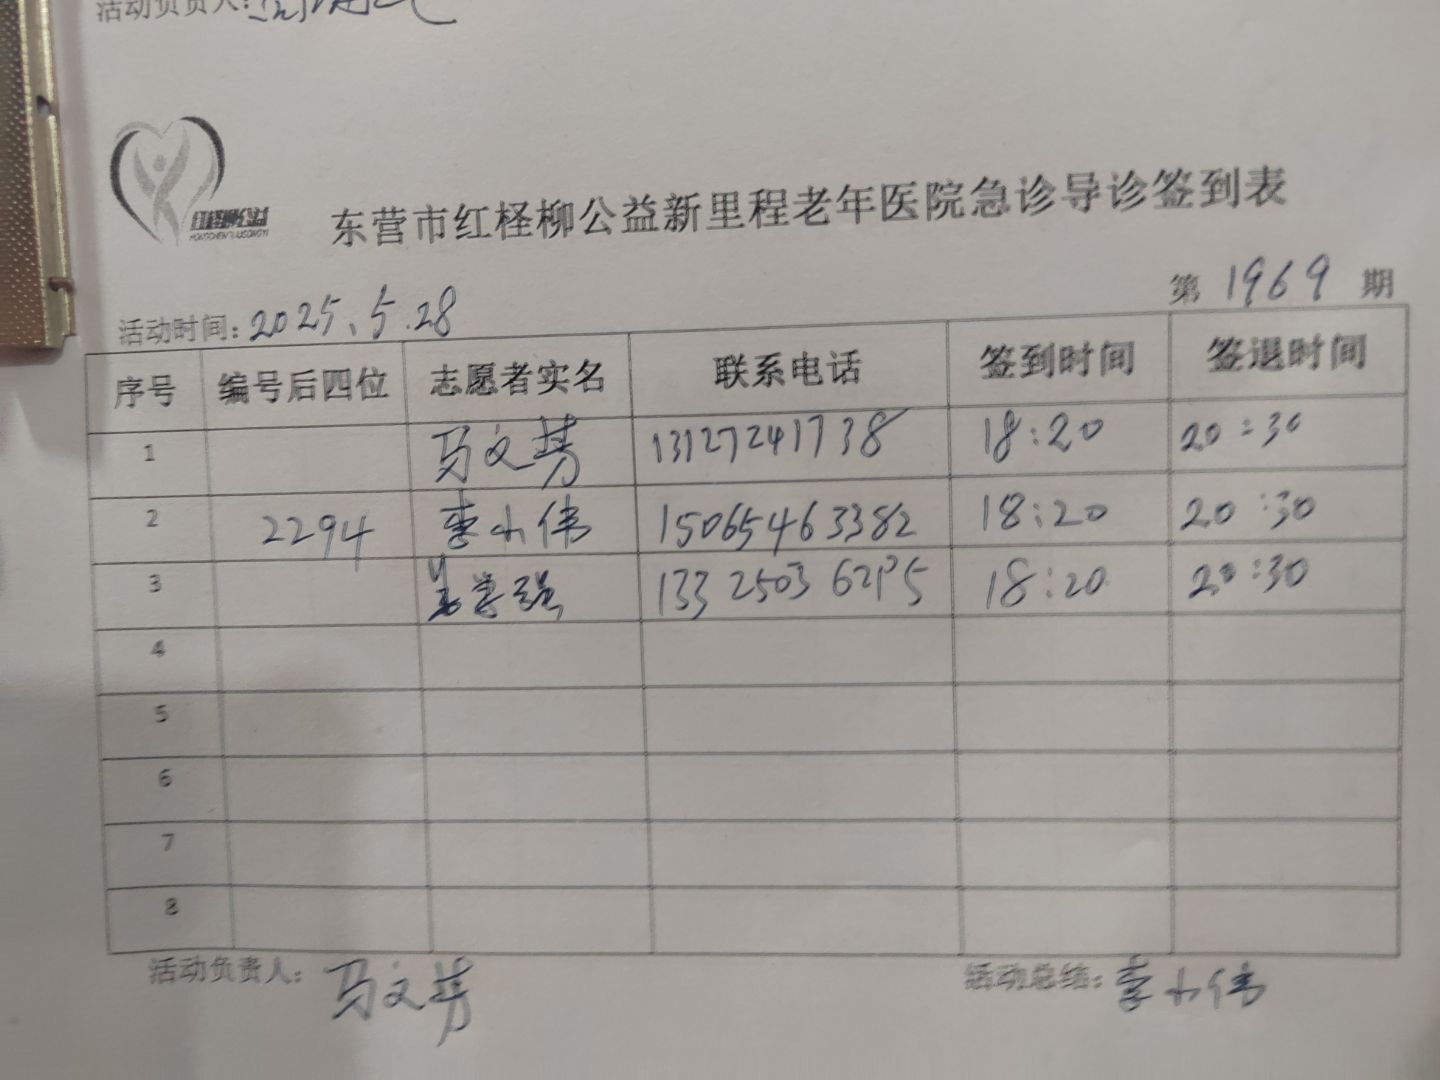 活动负责人:
HONGCHENGLIUGONGYI
东营市红柽柳公益新里程老年医院急诊导诊签到表
活动时间:2025.5.28 第 1969 期
序号 编号后四位 志愿者实名 联系电话 签到时间 签退时间
1 马文芳 13127241738 18:20 20:30
2 2294 李小伟 15065463382 18:20 20:30
3 18:20 20:30
4
5
6
7
8
活动负责人: 马文芳 活动总结: 李小伟